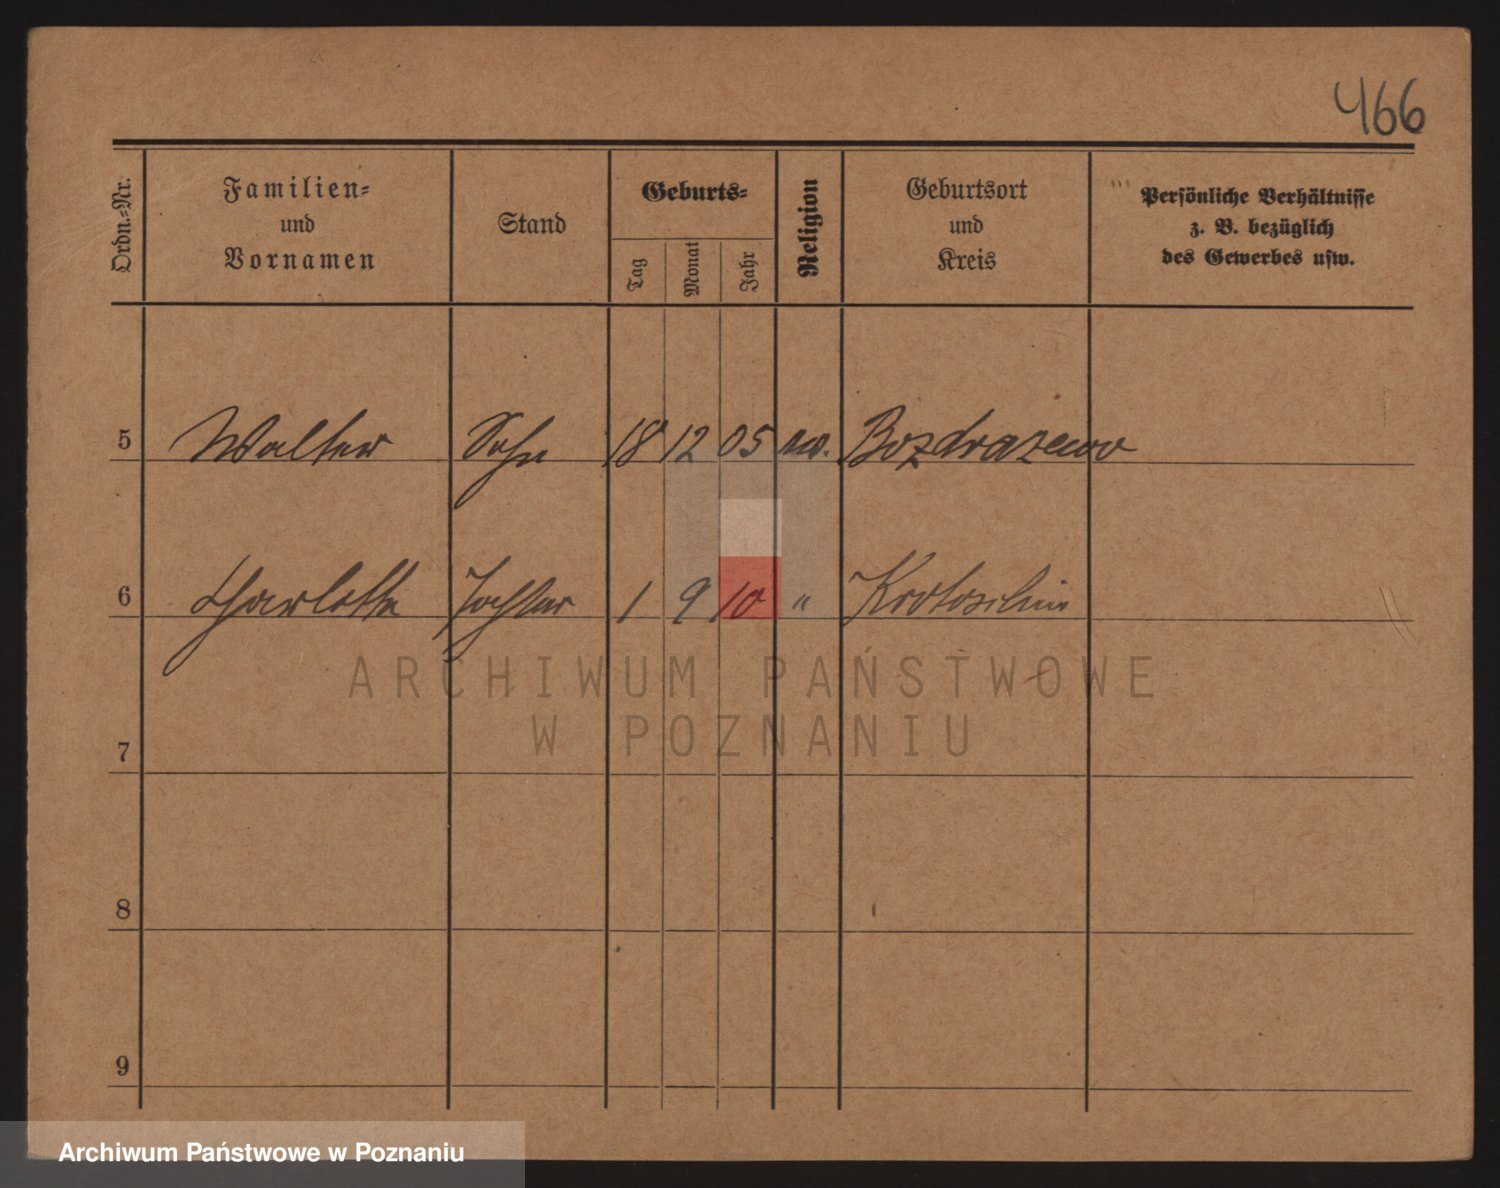 466
Ordn.-Nr.
Familien-
und
Vornamen
Stand
Geburts-
Tag
Monat
Jahr
Religion
Geburtsort
und
Kreis
Persönliche Verhältnisse
z. B. bezüglich
des Gewerbes usw.
5 Walter Sohn 18 12 05 ev. Bozdrazewo
6 Charlotte Tochter 1 9 10 " Krotoschin
ARCHIWUM PAŃSTWOWE
W POZNANIU
7
8
9
Archiwum Państwowe w Poznaniu